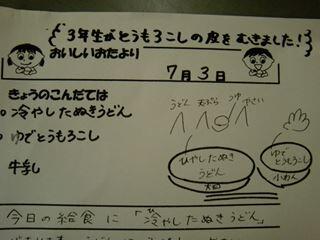 3年生がとうもろこしの皮をむきました!
おいしいおたより
7月3日
きょうのこんだては
冷やしたぬきうどん
ゆでとうもろこし
牛乳
うどん 天ぷら つゆ やさい
ひやしたぬき
うどん
大皿
ゆで
とうもろこし
小わん
今日の給食に「冷やしたぬきうどん」